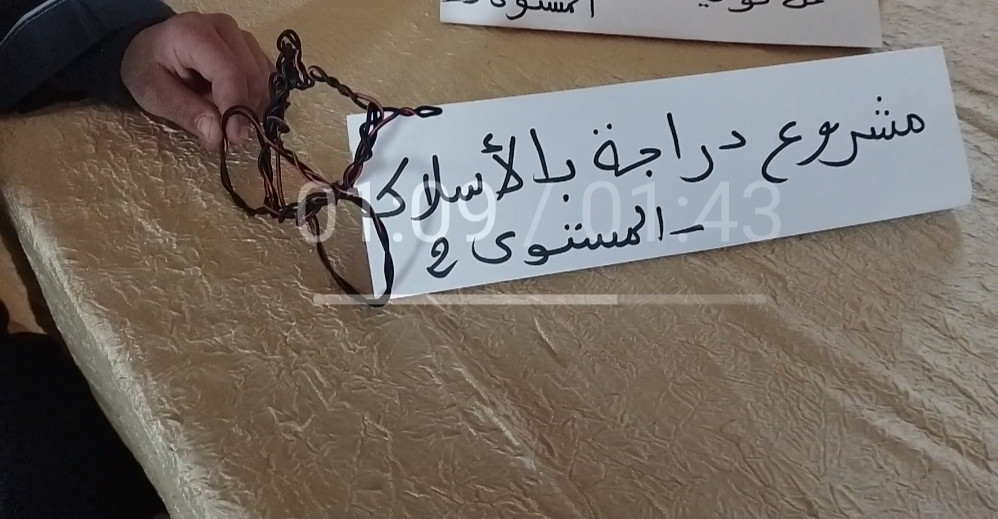 المستوى
مشروع دراجة بالأسلاك
- المستوى 2
01:09 / 01:43